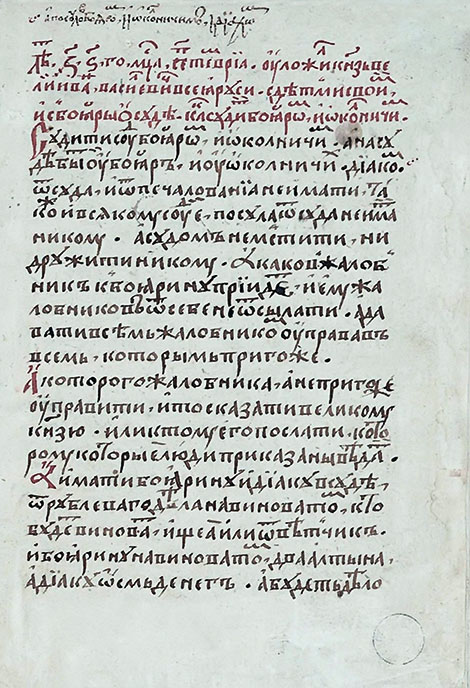 а посулов бояром, и околничим, и диаком
Лѣт ҂ЗS го, мсца септевриа. оуложил кнѕь ве
ликии иван василевич всеа руси. с детми своими,
и с бояры о судѣ. как судити бояром, и околничи.
Судити суд бояром, и околничим. а на су
дѣ быти оу бояръ, и оу околничих диако.
ѿ суда, и ѿ печалованиа не имати, та
кож и всякому судие, посула ѿ суда не имати
никому. а судомъ не мстити, ни
дружити никому. а каков жалоб
никъ к боярину приидѣт, и ему жа
лобниковъ ѿ себе не ѿсылати. а да
вати всѣмъ жалобником оуправа въ
всемь, которымъ пригоже.
А которого жалобника, а непригоже
оуправити, и то сказати великому
кнѕю. или к тому его послати. кото
рому которые люди приказаны вѣдати.
А имати боярину и диаку в судѣ,
ѿ рублеваго дѣла на виноватом, кто
будет виноват, ищеа или ѿвѣтчикъ.
и боярину на виноватом, два алтына,
а диаку ѡсмь денегъ. а будеть дѣло